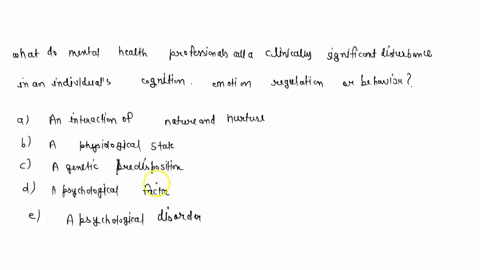 what do mental health professionals call a clinically significant disturbance
in an individual's cognition. emotion regulation or behavior?
a) An interaction of nature and nurture
b) A physiological state
c) A genetic predisposition
d) A psychological factor
e) A psychological disorder